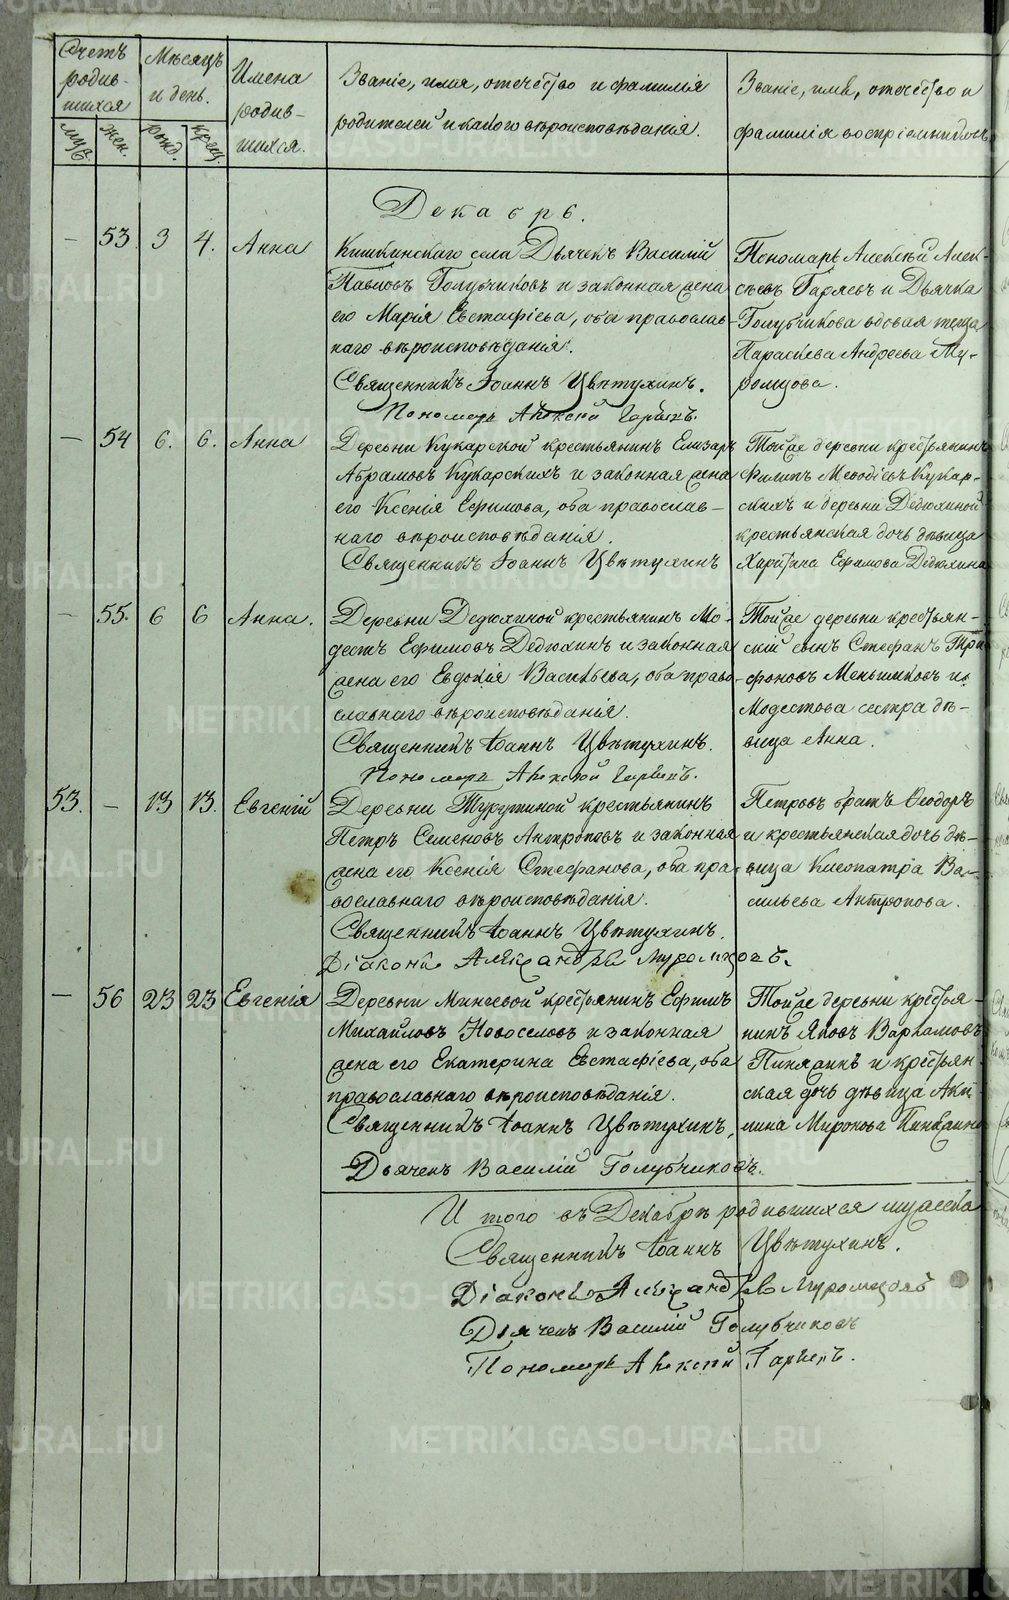 Счетъ родив-шихся
Мѣсяцъ и день.
Имена родив-шихся.
Званіе, имя, отечество и фамилія
родителей и какого вѣроисповѣданія.
Званіе, имя, отечество и
фамилія воспріемниковъ
муж. жен. рожд. крещ.
Декабрь.
— 53. 3 4. Анна
Кишкинскаго села Дьячекъ Василій
Павловъ Голубчиковъ и законная жена
его Марія Евстафіева, оба православ-
наго вѣроисповѣданія.
Священникъ Іоаннъ Цвѣтухинъ.
Пономарь Алексѣй Гаряевъ.
Пономарь Алексѣй Алек-
сѣевъ Гаряевъ и Дьячка
Голубчикова вдовая теща
Параскева Андреева Му-
ромцова.
— 54 6. 6. Анна
Деревни Кукарской крестьянинъ Елизаръ
Абрамовъ Кукарскихъ и законная жена
его Ксенія Ефимова, оба православ-
наго вѣроисповѣданія.
Священникъ Іоаннъ Цвѣтухинъ
Тойже деревни крестьянинъ
Филипъ Меѳодіевъ Кукар-
скихъ и деревни Дедюхиной
крестьянская дочь дѣвица
Харитина Ефимова Дедюхина
— 55. 6 6 Анна.
Деревни Дедюхиной крестьянинъ Мо-
дестъ Ефимовъ Дедюхинъ и законная
жена его Евдокія Васильева, оба право-
славнаго вѣроисповѣданія.
Священникъ Іоаннъ Цвѣтухинъ.
Пономарь Алексѣй Гаряевъ.
Тойже деревни крестьян-
скій сынъ Стефанъ Три-
фоновъ Меньшиковъ и
Модестова сестра дѣ-
вица Анна.
53. — 13 13. Евгеній
Деревни Турутиной крестьянинъ
Петръ Семеновъ Антроповъ и законная
жена его Ксенія Стефанова, оба пра-
вославнаго вѣроисповѣданія.
Священникъ Іоаннъ Цвѣтухинъ.
Діаконъ Александръ Муромцовъ.
Петровъ братъ Ѳеодоръ
и крестьянская дочь дѣ-
вица Клеопатра Ва-
сильева Антропова.
— 56 23 23 Евгенія
Деревни Минеевой крестьянинъ Ефимъ
Михайловъ Новоселовъ и законная
жена его Екатерина Евстафіева, оба
православнаго вѣроисповѣданія.
Священникъ Іоаннъ Цвѣтухинъ.
Дьячекъ Василій Голубчиковъ.
Тойже деревни крестья-
нинъ Яковъ Варламовъ
Пинягинъ и крестьян-
ская дочь дѣвица Аки-
лина Миронова
И того въ Декабрѣ родившихся мужеска
Священникъ Іоаннъ Цвѣтухинъ.
Діаконъ Александръ Муромцовъ
Дьячекъ Василій Голубчиковъ
Пономарь Алексѣй Гаряевъ.
METRIKI.GASO-URAL.RU